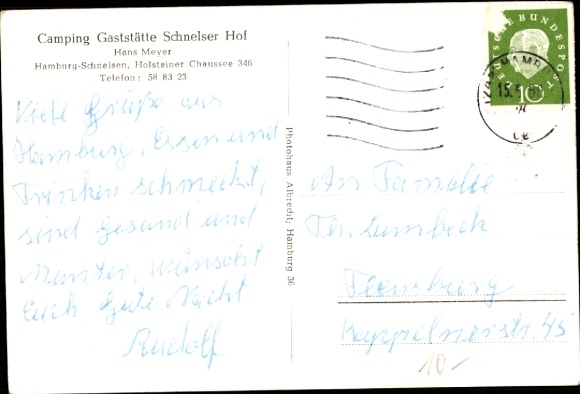 Camping Gaststätte Schnelser Hof
Hans Meyer
Hamburg-Schnelsen, Holsteiner Chaussee 346
Telefon: 58 83 23
Viele Grüße aus
Hamburg, Essen und
Trinken schmeckt,
sind gesund und
Munter, wünscht
Euch Gute Nacht
Rudolf
Photohaus Albrecht, Hamburg 36
DEUTSCHE BUNDESPOST
10
HAMBURG
15.
An Familie
Th. Lumbeck
Flensburg
Kappelnerstr. 45
10-